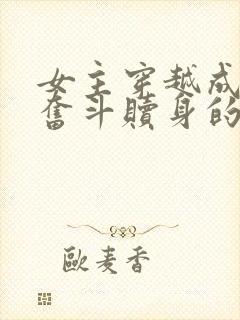 女主穿越成
奮斗贖身的
歐麦香